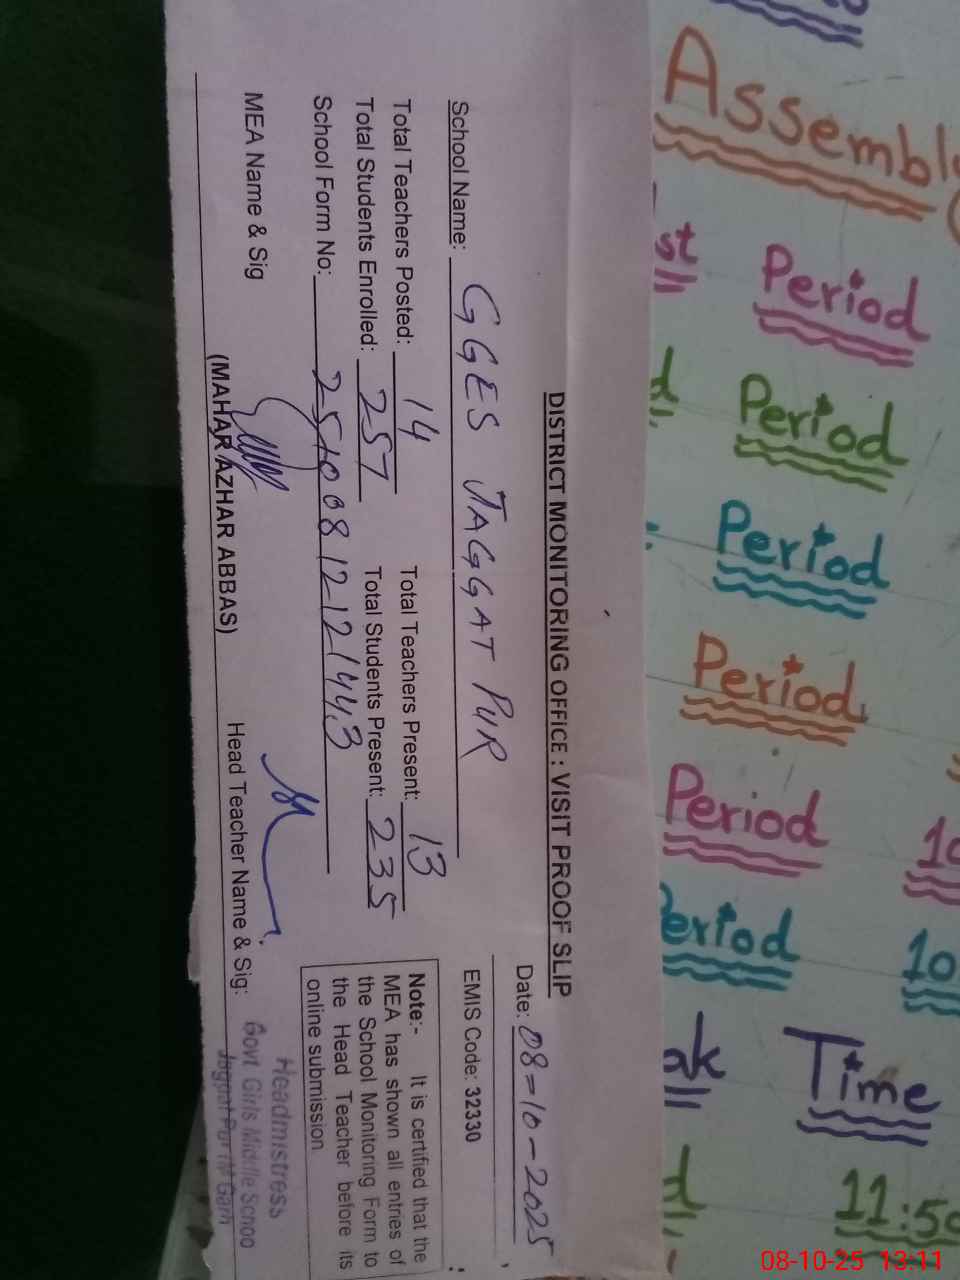 DISTRICT MONITORING OFFICE : VISIT PROOF SLIP
Date: 08-10-2025
School Name: GGES JAGGAT PUR
EMIS Code: 32330
Total Teachers Posted: 14 Total Teachers Present: 13
Total Students Enrolled: 257 Total Students Present: 235
School Form No: 25100812121443
Note:- It is certified that the
MEA has shown all entries of
the School Monitoring Form to
the Head Teacher before its
online submission
MEA Name & Sig
(MAHAR AZHAR ABBAS)
Head Teacher Name & Sig:
Headmistress
Govt Girls Middle Schoo
Jagpat Pur M Garh
Assembly
st Period
d Period
Period
Period
Period 10
Period 10
ak Time
d 11:50
08-10-25 13:11